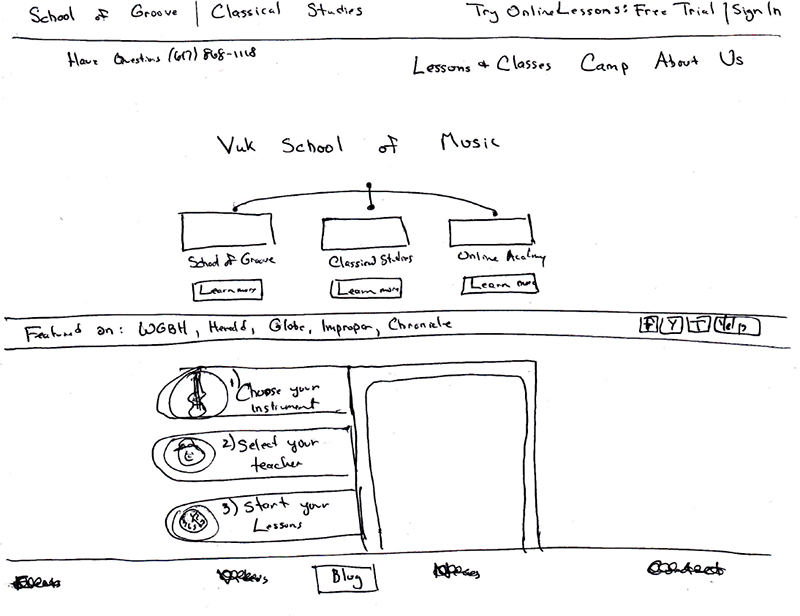 School of Groove | Classical Studies
Try Online Lessons: Free Trial | Sign In
Have Questions (617) 868-1118
Lessons & Classes Camp About Us
Vuk School of Music
School of Groove
Classical Studies
Online Acadmy
Learn more
Learn more
Learn more
Featured on: WGBH, Herald, Globe, Improper, Chronicle
F Y T Yelp
1) Choose your
instrument
2) Select your
teacher
3) Start your
Lessons
Blog